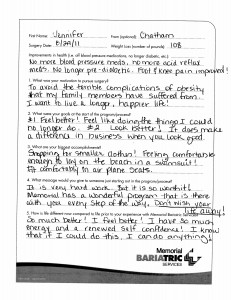 First Name Jennifer From (optional) Chatham
Surgery Date: 8/24/11 Weight Loss (number of pounds) 108
Improvements in health (i.e. off blood pressure medications, no longer diabetic, etc.)
No more blood pressure meds, no more acid reflux
meds. No longer pre-diabetic. Foot & knee pain improved!
1. What was your motivation to pursue surgery?
To avoid the terrible complications of obesity
that my family members have suffered from.
I want to live a longer, happier life!
2. What were your goals at the start of your program/process?
#1 Feel better! Feel like doing the things I could
no longer do. #2 Look better! It does make
a difference in business when you look good.
3. What was your Biggest accomplishment?
Shopping for smaller clothes! Feeling comfortable
enough to lay on the beach in a swimsuit!
Fit comfortably in air plane seats.
4. What message would you give to someone just starting out in the program/process?
It is very hard work. But it is so worth it!
Memorial has a wonderful program that is there
with you every step of the way. Don't wish your
life away!
5. How is life different now compared to life prior to your experience with Memorial Bariatric Services?
So much better! I feel better! I have so much
energy and a renewed self confidence! I know
that if I could do this, I can do anything!
Memorial
BARIATRIC
SERVICES